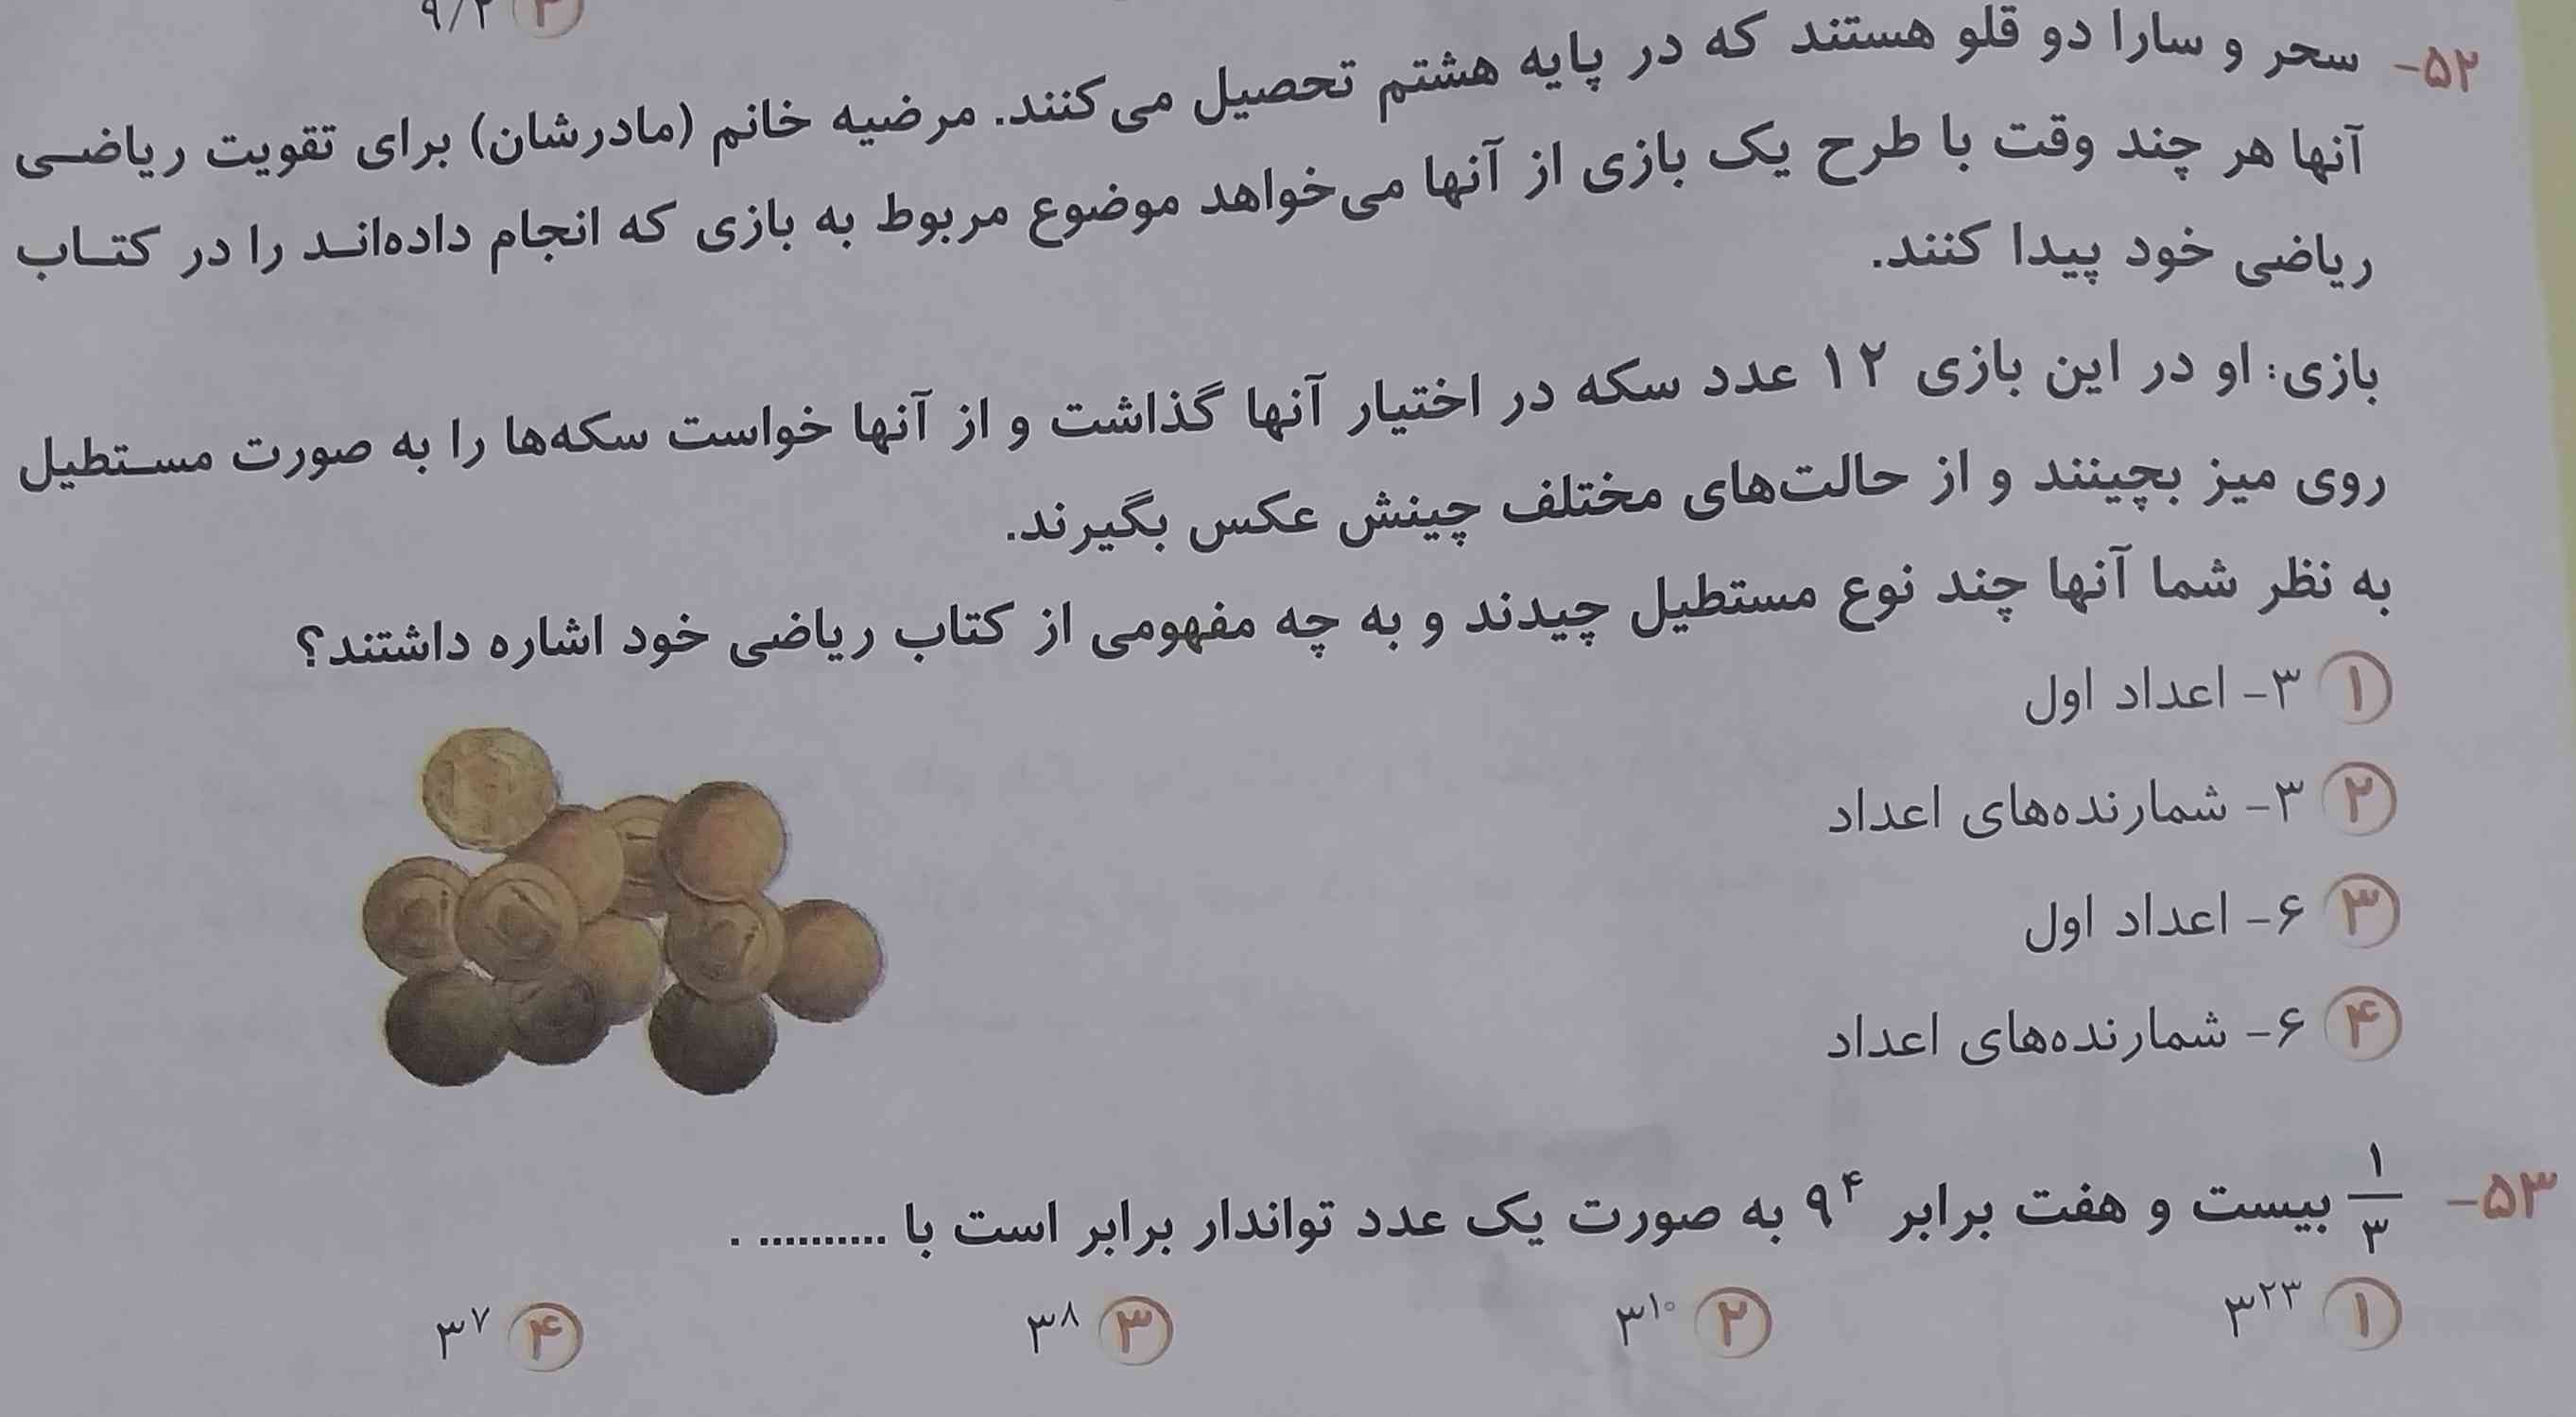 ۲ ۹/۲
۵۲- سحر و سارا دو قلو هستند که در پایه هشتم تحصیل می‌کنند. مرضیه خانم (مادرشان) برای تقویت ریاضی
آنها هر چند وقت با طرح یک بازی از آنها می‌خواهد موضوع مربوط به بازی که انجام داده‌اند را در کتاب
ریاضی خود پیدا کنند.
بازی: او در این بازی ۱۲ عدد سکه در اختیار آنها گذاشت و از آنها خواست سکه‌ها را به صورت مستطیل
روی میز بچینند و از حالت‌های مختلف چینش عکس بگیرند.
به نظر شما آنها چند نوع مستطیل چیدند و به چه مفهومی از کتاب ریاضی خود اشاره داشتند؟
۱ ۳- اعداد اول
۲ ۳- شمارنده‌های اعداد
۳ ۶- اعداد اول
۴ ۶- شمارنده‌های اعداد
۵۳- ۱/۳ بیست و هفت برابر ۹⁴ به صورت یک عدد تواندار برابر است با .......... .
۱ ۳²³ ۲ ۳¹⁰ ۳ ۳⁸ ۴ ۳⁷